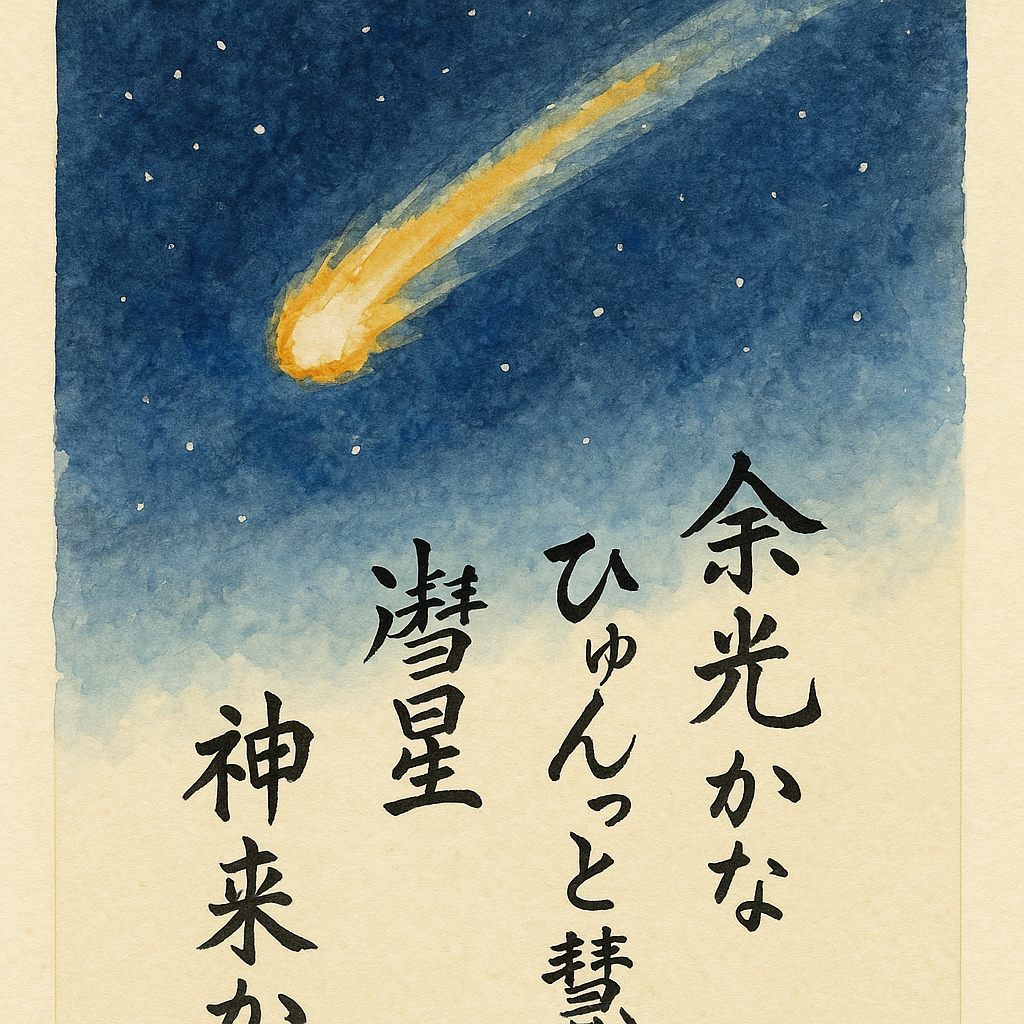 余光かな
ひゅんっと
星
神来か